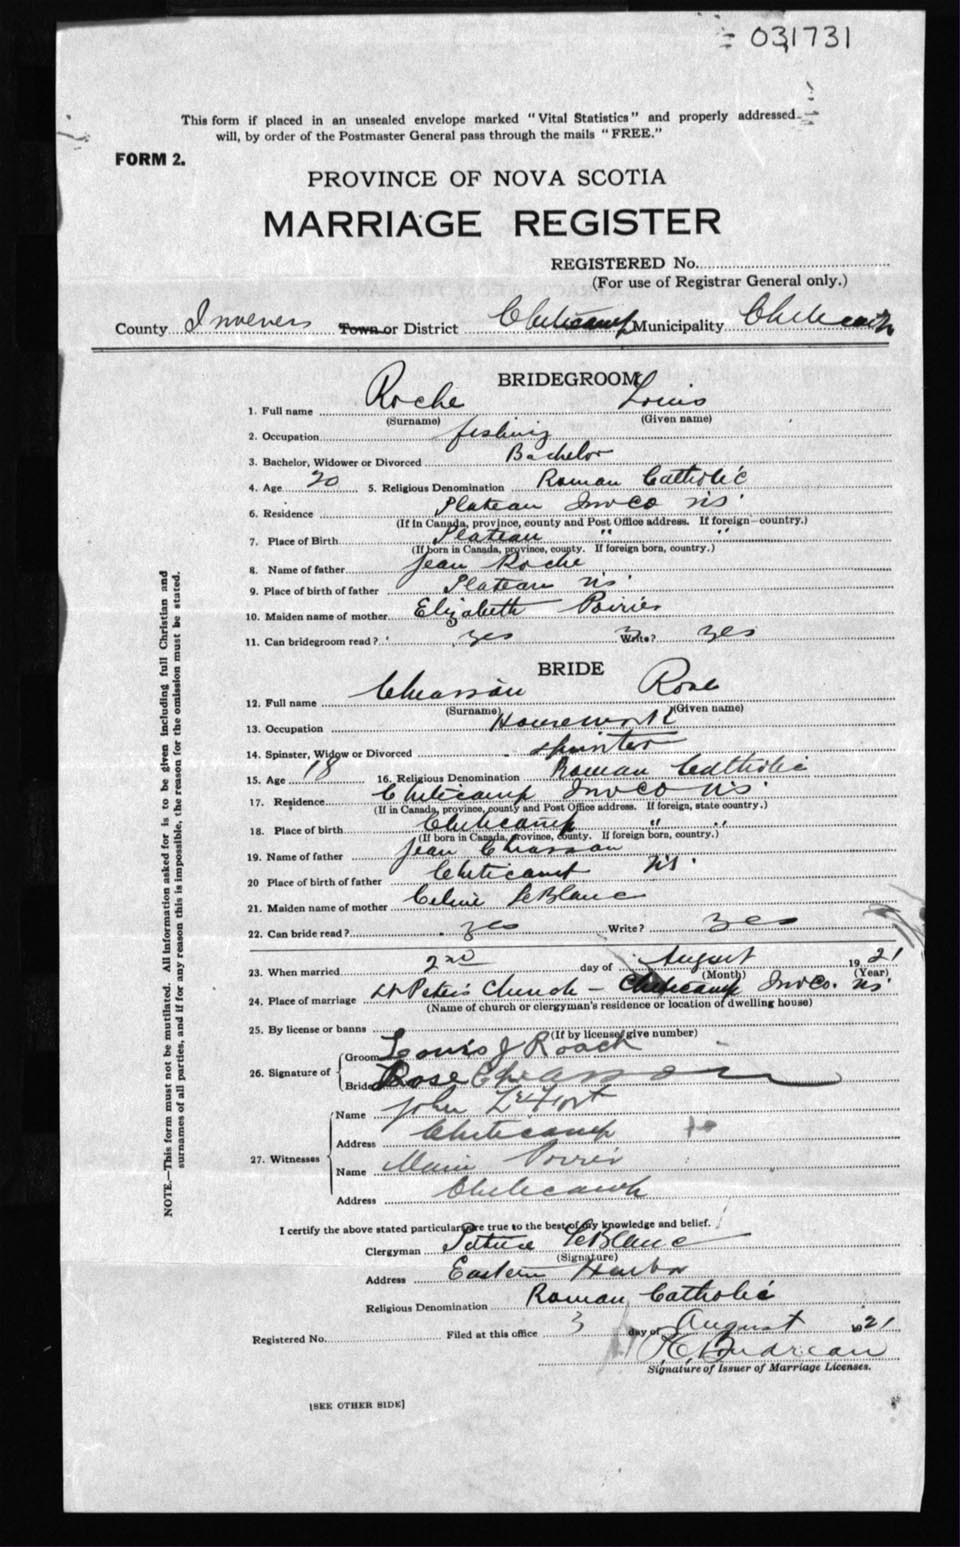 031731
This form if placed in an unsealed envelope marked "Vital Statistics" and properly addressed
will, by order of the Postmaster General pass through the mails "FREE."
FORM 2.
PROVINCE OF NOVA SCOTIA
MARRIAGE REGISTER
REGISTERED No.
(For use of Registrar General only.)
County Inverness Town or District Cheticamp Municipality
BRIDEGROOM
1. Full name Roche Louis
(Surname) (Given name)
2. Occupation fishing
3. Bachelor, Widower or Divorced Bachelor
4. Age 20 5. Religious Denomination Roman Catholic
6. Residence Plateau Inv Co NS
(If in Canada, province, county and Post Office address. If foreign country.)
7. Place of Birth Plateau " "
(If born in Canada, province, county. If foreign born, country.)
8. Name of father Jean Roche
9. Place of birth of father Plateau NS
10. Maiden name of mother Elizabeth Poirier
11. Can bridegroom read? yes Write? yes
BRIDE
12. Full name Chiasson Rose
(Surname) (Given name)
13. Occupation Housework
14. Spinster, Widow or Divorced spinster
15. Age 18 16. Religious Denomination Roman Catholic
17. Residence Cheticamp Inv Co NS
(If in Canada, province, county and Post Office address. If foreign, state country.)
18. Place of birth Cheticamp " "
(If born in Canada, province, county. If foreign born, country.)
19. Name of father Jean Chiasson
20 Place of birth of father Cheticamp NS
21. Maiden name of mother Celine LeBlanc
22. Can bride read? yes Write? yes
23. When married 2nd day of August 1921
(Month) (Year)
24. Place of marriage St Peter's Church - Cheticamp Inv Co. NS
(Name of church or clergyman's residence or location of dwelling house)
25. By license or banns
(If by license, give number)
26. Signature of Groom Louis J Roach
Bride Rose Chiasson
27. Witnesses Name John LeFort
Address Cheticamp
Name Poirier
Address Cheticamp
I certify the above stated particulars are true to the best of my knowledge and belief.
Clergyman LeBlanc
(Signature)
Address Eastern Harbor
Religious Denomination Roman Catholic
Registered No. Filed at this office 3 day of August 1921
Signature of Issuer of Marriage Licenses.
[SEE OTHER SIDE]
NOTE.—This form must not be mutilated. All information asked for is to be given including full Christian and
surnames of all parties, and if for any reason this is impossible, the reason for the omission must be stated.